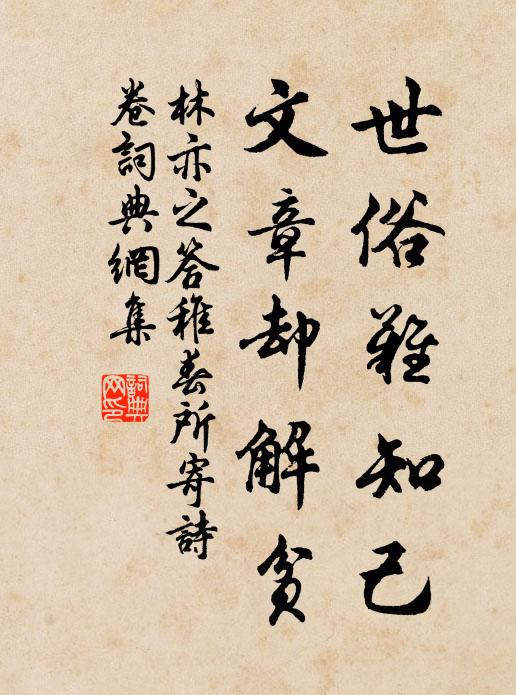 世俗難知己
文章却解貧
林亦之答稚春所寄詩
卷詞典網集
詞典
网印